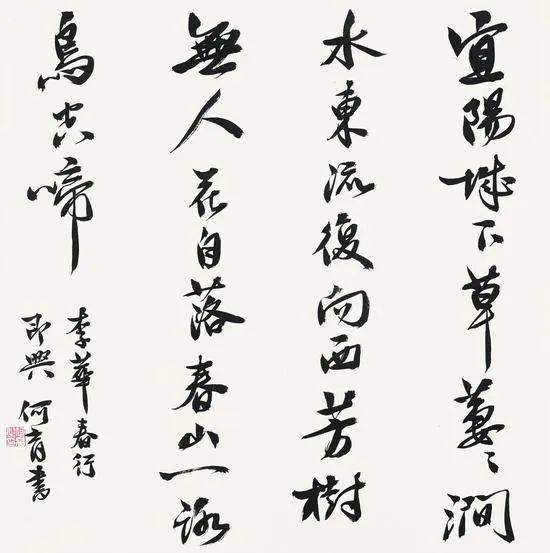 宜陽城下草萋〻澗
水東流復向西芳樹
無人花自落春山一路
鳥空啼
李華春行
即興何書